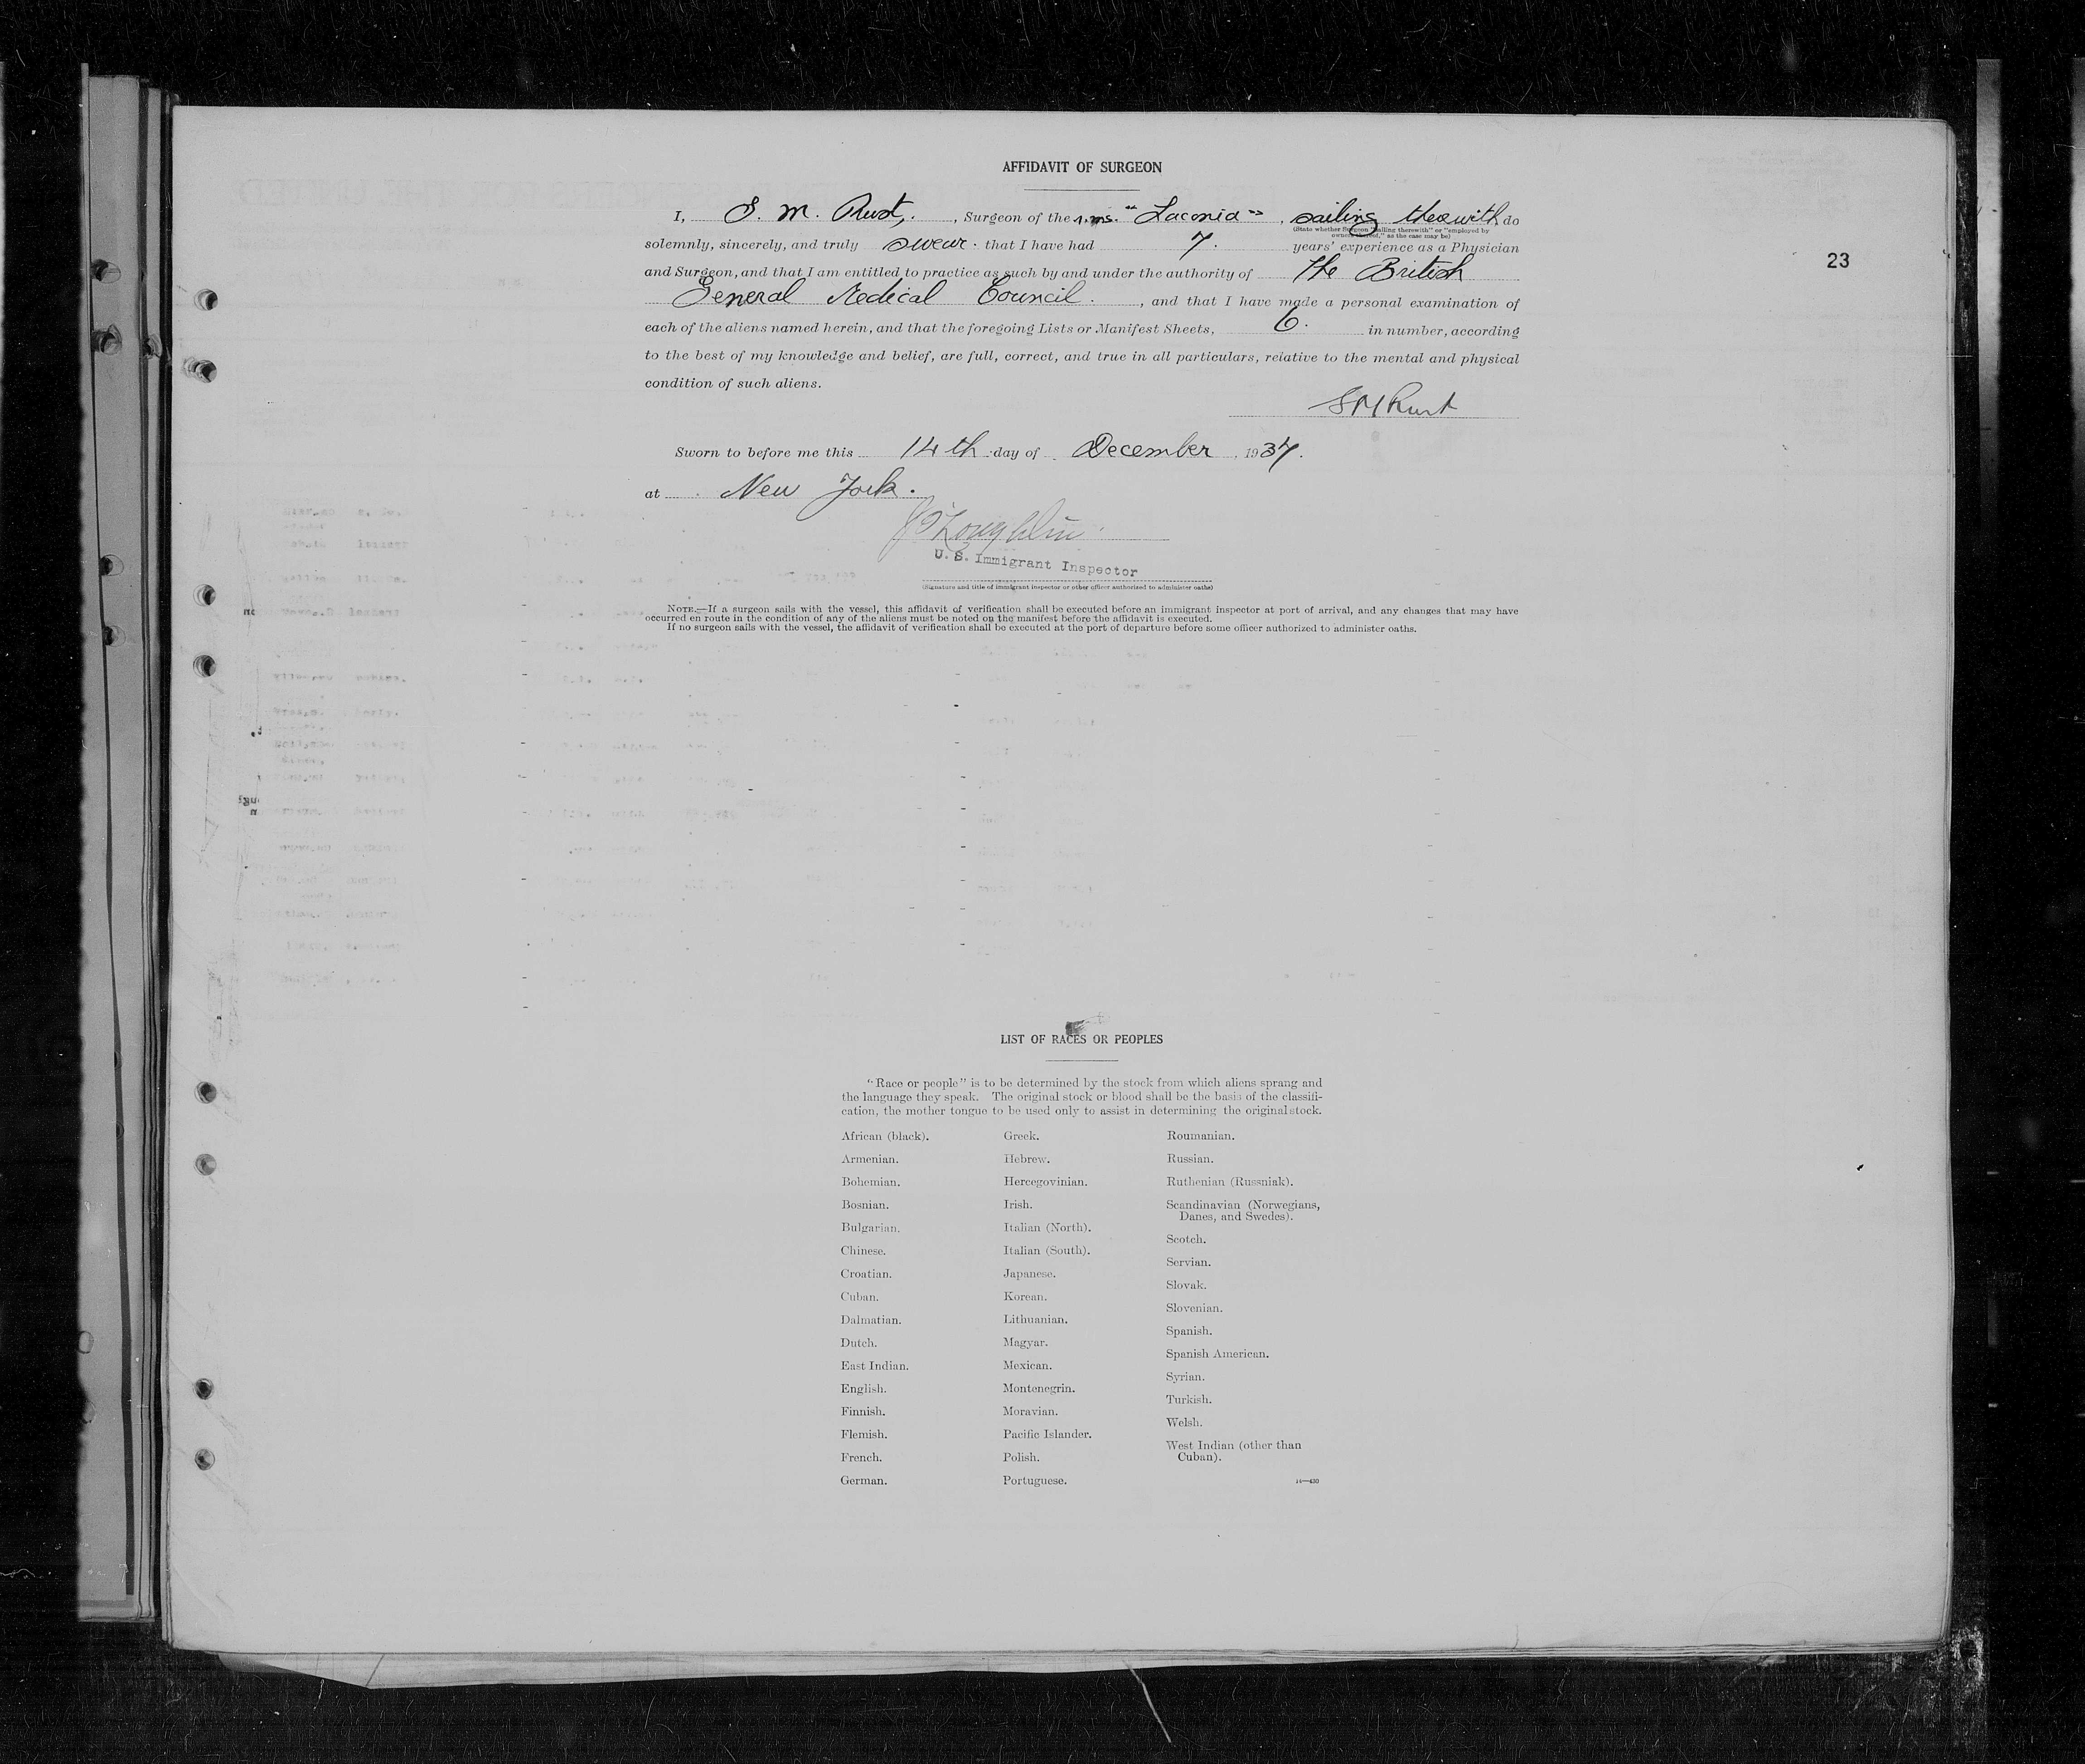 AFFIDAVIT OF SURGEON
I, S. M. Rust, , Surgeon of the s.ms. "Laconia" , sailing therewith, do
(State whether Surgeon "sailing therewith" or "employed by
owners thereof," as the case may be)
solemnly, sincerely, and truly swear. that I have had 7. years' experience as a Physician
and Surgeon, and that I am entitled to practice as such by and under the authority of The British
General Medical Council. , and that I have made a personal examination of
each of the aliens named herein, and that the foregoing Lists or Manifest Sheets, 6. in number, according
to the best of my knowledge and belief, are full, correct, and true in all particulars, relative to the mental and physical
condition of such aliens.
S M Rust
Sworn to before me this 14th day of December , 1937.
at New York.
U. S. Immigrant Inspector
(Signature and title of immigrant inspector or other officer authorized to administer oaths)
NOTE.—If a surgeon sails with the vessel, this affidavit of verification shall be executed before an immigrant inspector at port of arrival, and any changes that may have
occurred en route in the condition of any of the aliens must be noted on the manifest before the affidavit is executed.
If no surgeon sails with the vessel, the affidavit of verification shall be executed at the port of departure before some officer authorized to administer oaths.
23
LIST OF RACES OR PEOPLES
"Race or people" is to be determined by the stock from which aliens sprang and
the language they speak. The original stock or blood shall be the basis of the classifi-
cation, the mother tongue to be used only to assist in determining the original stock.
African (black).
Armenian.
Bohemian.
Bosnian.
Bulgarian.
Chinese.
Croatian.
Cuban.
Dalmatian.
Dutch.
East Indian.
English.
Finnish.
Flemish.
French.
German.
Greek.
Hebrew.
Hercegovinian.
Irish.
Italian (North).
Italian (South).
Japanese.
Korean.
Lithuanian.
Magyar.
Mexican.
Montenegrin.
Moravian.
Pacific Islander.
Polish.
Portuguese.
Roumanian.
Russian.
Ruthenian (Russniak).
Scandinavian (Norwegians,
Danes, and Swedes).
Scotch.
Servian.
Slovak.
Slovenian.
Spanish.
Spanish American.
Syrian.
Turkish.
Welsh.
West Indian (other than
Cuban).
14—430